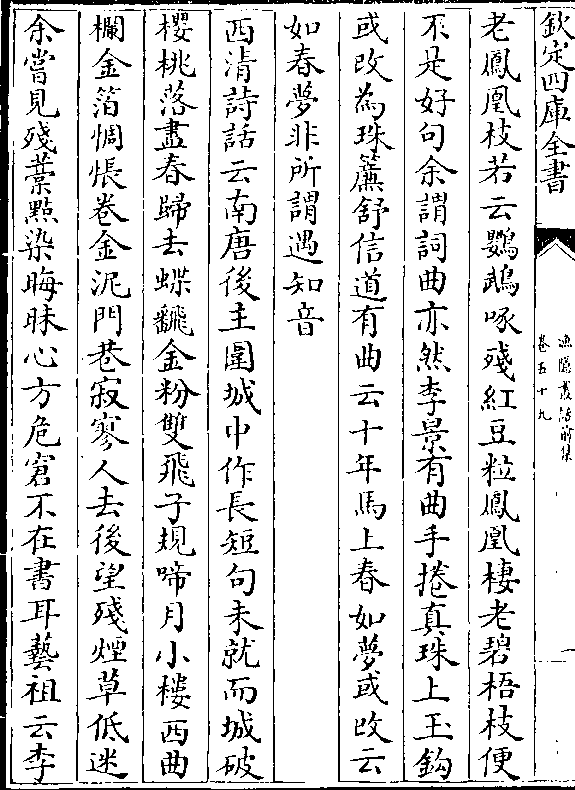 欽定四庫全書
漁隱叢話前集
卷五十九
老鳳凰枝若云鸚鵡啄殘紅豆粒鳳凰棲老碧梧枝便
不是好句余謂詞曲亦然李景有曲手捲真珠上玉鈎
或改為珠簾舒信道有曲云十年馬上春如夢或改云
如春夢非所謂遇知音
西清詩話云南唐後主圍城中作長短句未就而城破
櫻桃落盡春歸去蝶飜金粉雙飛子規啼月小樓西曲
欄金箔惆悵卷金泥門巷寂寥人去後望殘煙草低迷
余嘗見殘藁點染晦昧心方危窘不在書耳藝祖云李